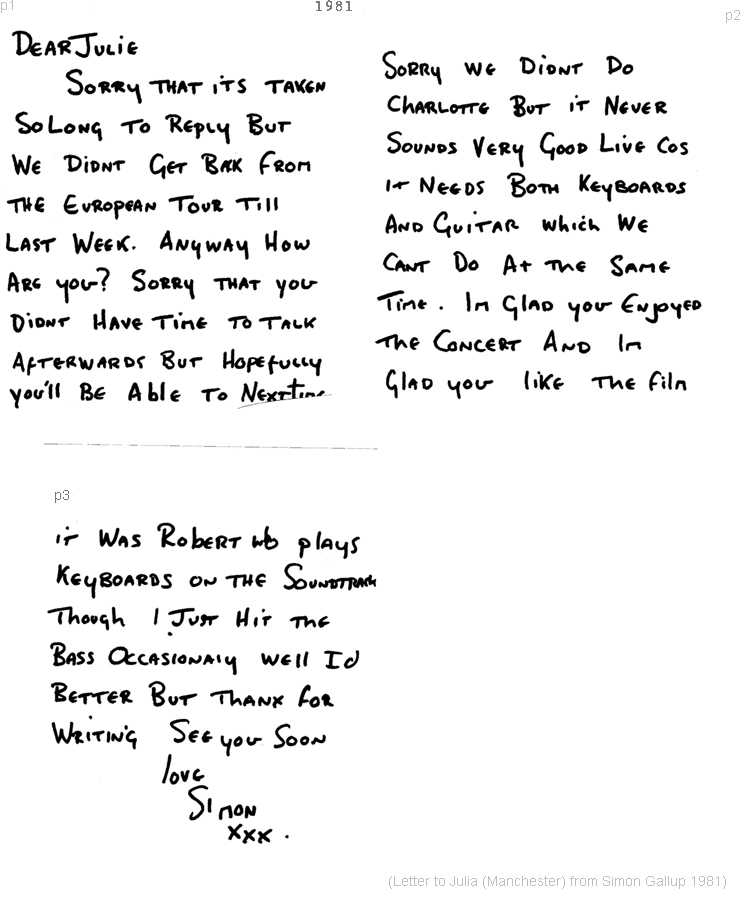 p1
1981
p2
DEAR JULIE
SORRY THAT ITS TAKEN
SO LONG TO REPLY BUT
WE DIDNT GET BACK FROM
THE EUROPEAN TOUR TILL
LAST WEEK. ANYWAY HOW
ARE you? SORRY THAT you
DIDNT HAVE TIME TO TALK
AFTERWARDS BUT HOPEFULLY
you'll BE Able TO NEXT time
SORRY WE DIDNT DO
CHARLOTTE BUT IT NEVER
SOUNDS VERY GOOD LIVE COS
It NEEDS BOTH KEYBOARDS
AND GUITAR which WE
CANT DO At THE SAME
TIME. IM GLAD you ENJOYED
THE CONCERT AND IM
GLAD you lIKE THE film
p3
iT WAS ROBERT who plAYS
KEYBOARDS ON THE SOUNDTRACK
Though I JUST HIT THE
BASS OCCASIONAlY WEll Id
BETTER BUT THANX for
WRITING SEE you SOON
love
SIMON
xxx.
(Letter to Julia (Manchester) from Simon Gallup 1981)